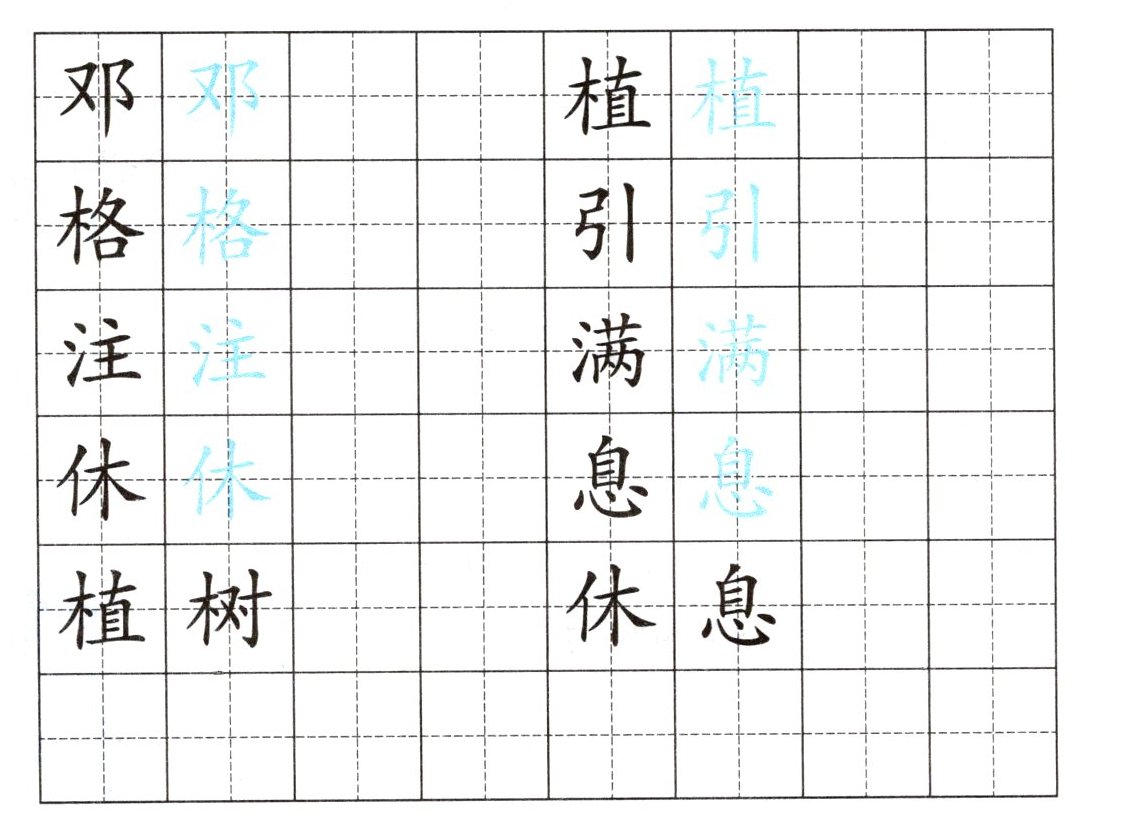 邓 邓 植 植
格 格 引 引
注 注 满 满
休 休 息 息
植 树 休 息